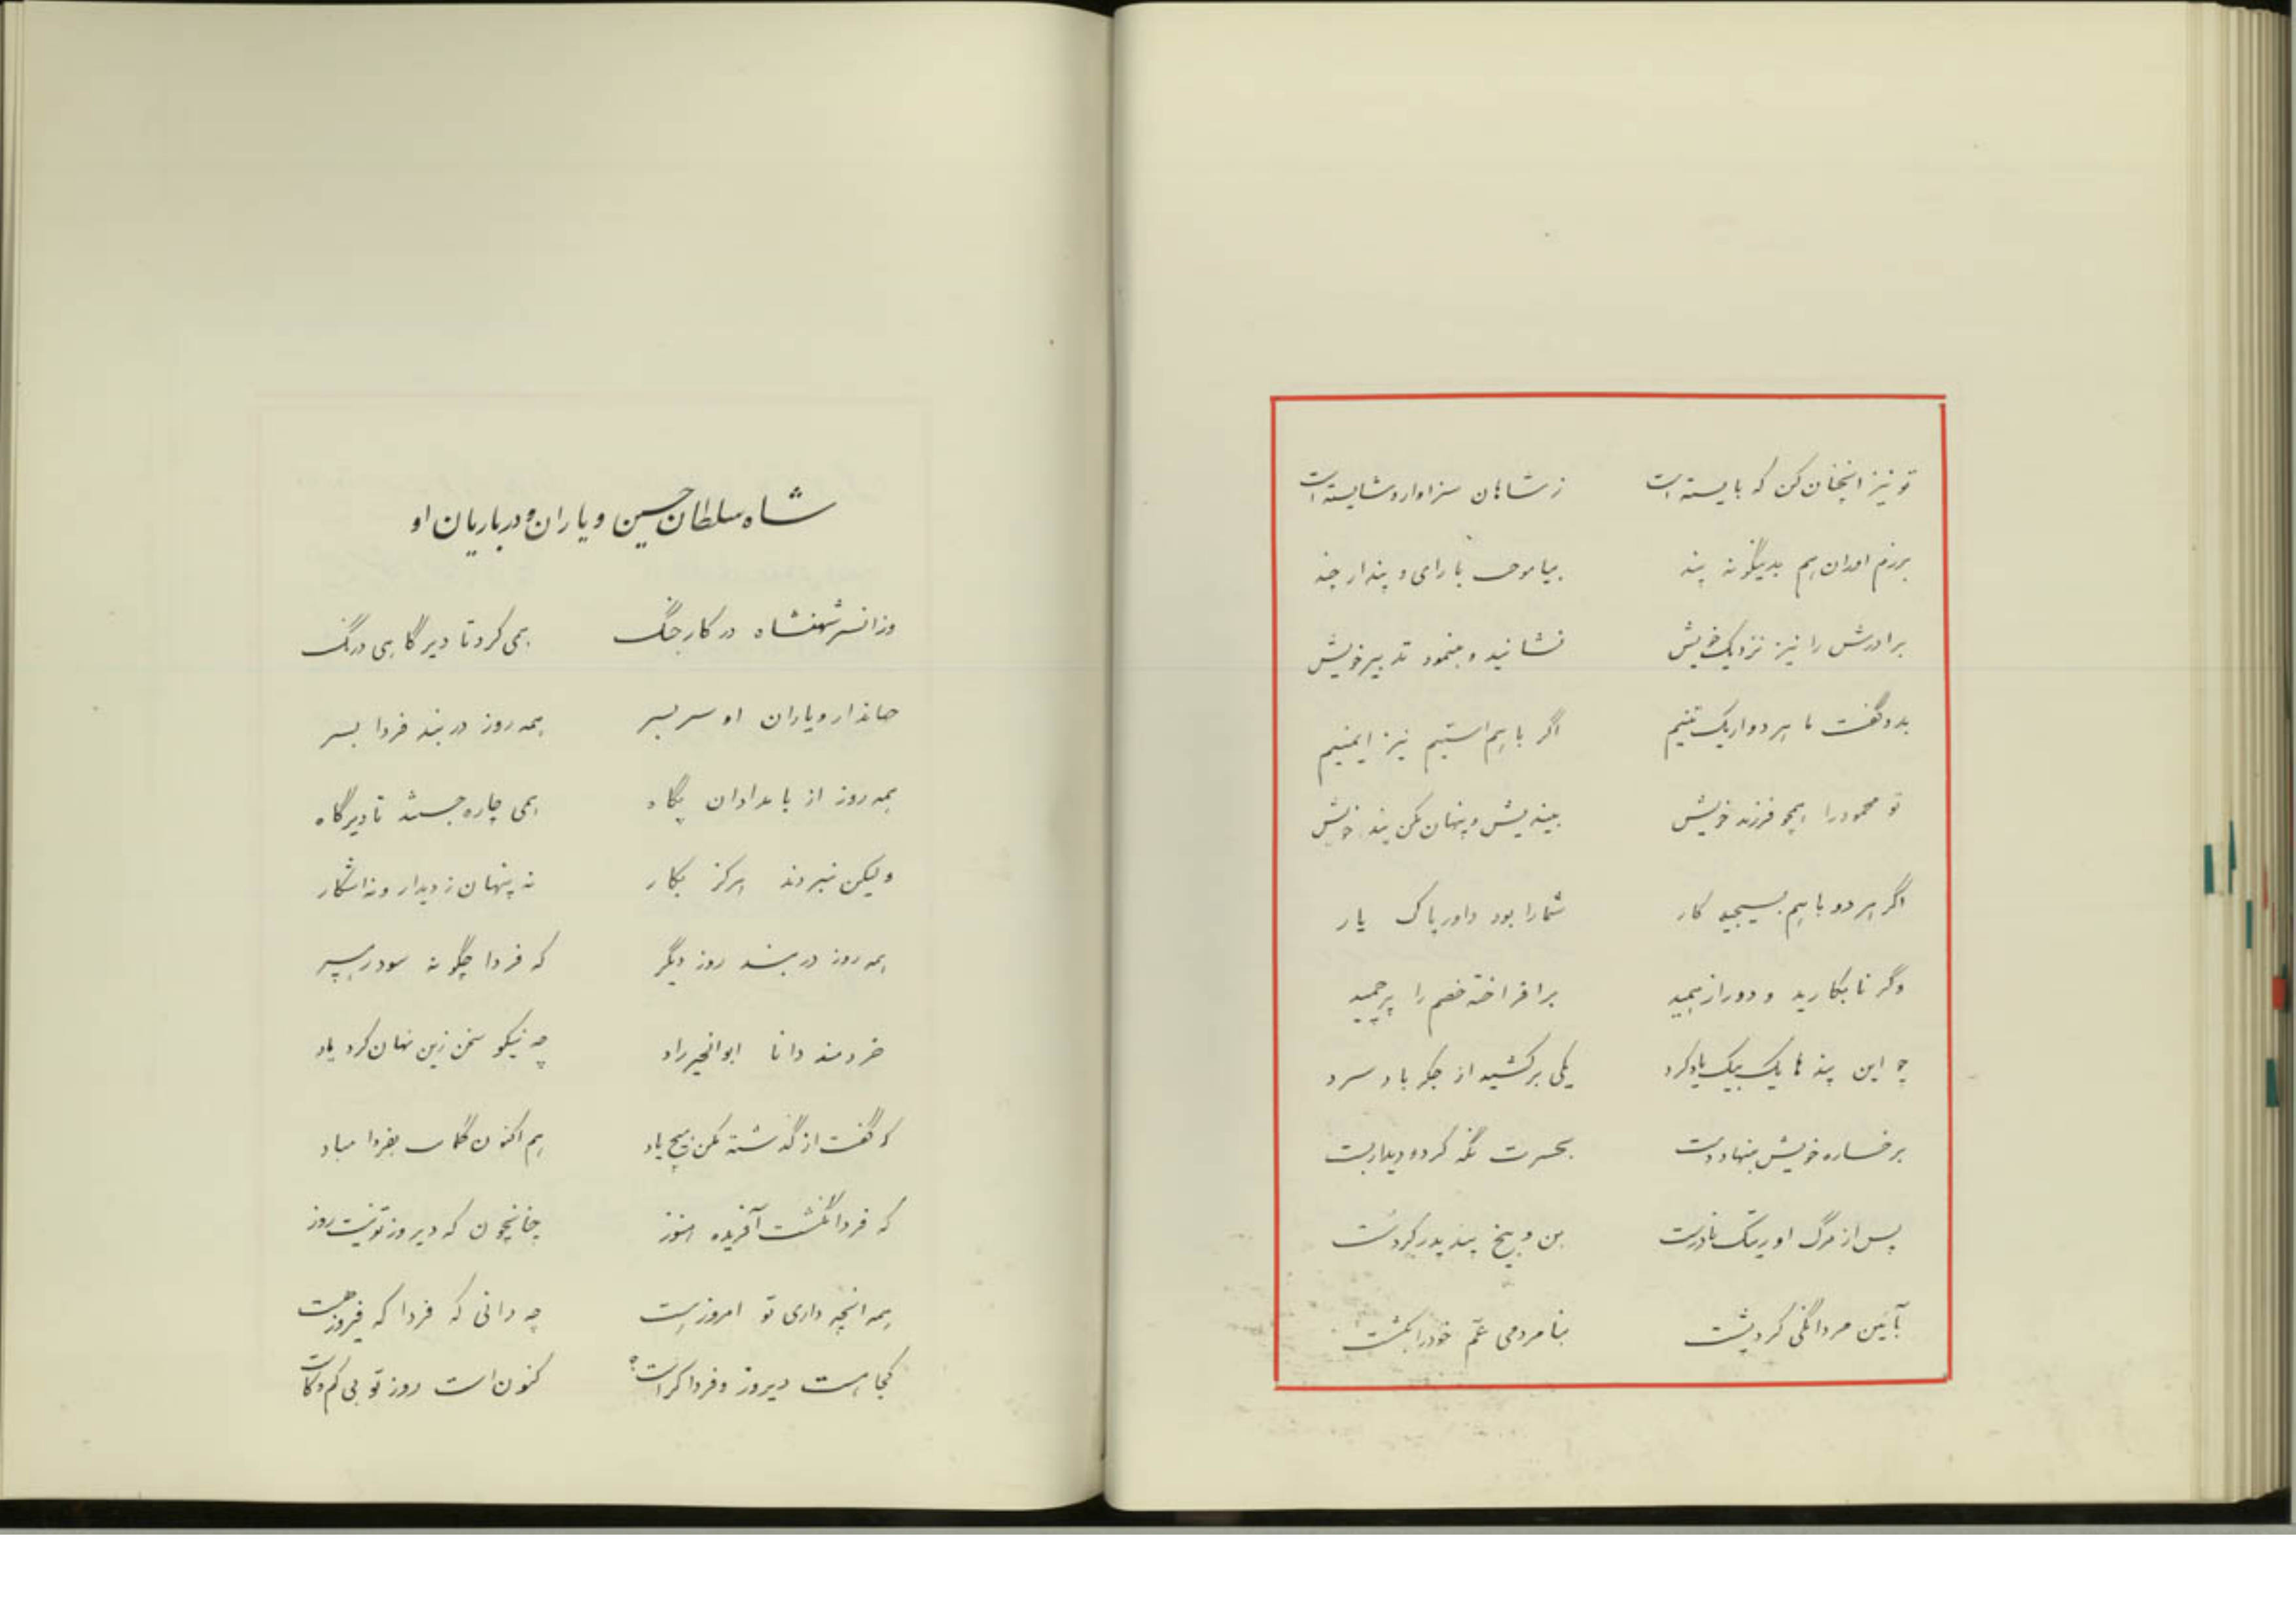 تو نیز انچنان کن که بایسته است ز شاهان سزاوار و شایسته است
برزم اندران هم بدینگونه پند بیاموخت با رای و پندار چند
برادرش را نیز نزدیک خویش نشانید و بنمود تدبیر خویش
بدو گفت ما هر دو از یک تنیم اگر با هم استیم نیز ایمنیم
تو محمود را همچو فرزند خویش بیندیش و پنهان مکن پند خویش
اگر هر دو با هم بسیجید کار شما را بود داور پاک یار
وگر نابکارید و دور از همید برافراخته خصم را پرچمید
چو این پندها یک بیک یاد کرد یکی برکشید از جگر باد سرد
برخساره خویش بنهاد دست بحسرت نگه کرد و دیدار بست
پس از مرگ او بن و بیخ پند پدر کرد سست
بآئین مردانگی کرد پشت بنامردمی عمّ خود را بکشت
شاه سلطان حسین و یاران و درباریان او
وزانسر شهنشاه در کار جنگ همی کرد تا دیرگاهی درنگ
جهاندار و یاران او سر بسر همه روز در بند فردا بسر
همه روز از بامدادان پگاه همی چاره جستند تا دیرگاه
ولیکن نبردند هرگز بکار نه پنهان ز دیدار و نه اشکار
همه روز در بند روز دیگر که فردا چگونه سود رهسپر
خردمند دانا ابوالخیر راد چه نیکو سخن زین نهان کرد یاد
که گفت از گذشته مکن هیچ یاد هم اکنون گمانت بفردا مباد
که فردا نگشت آفریده هنوز چنانچون که دیروز تو نیست روز
همه انچه داری تو امروز هست چه دانی که فردا که فیروز هست
کجا هست دیروز و فردا کراست؟ کنون است روز تو بی کم و کاست